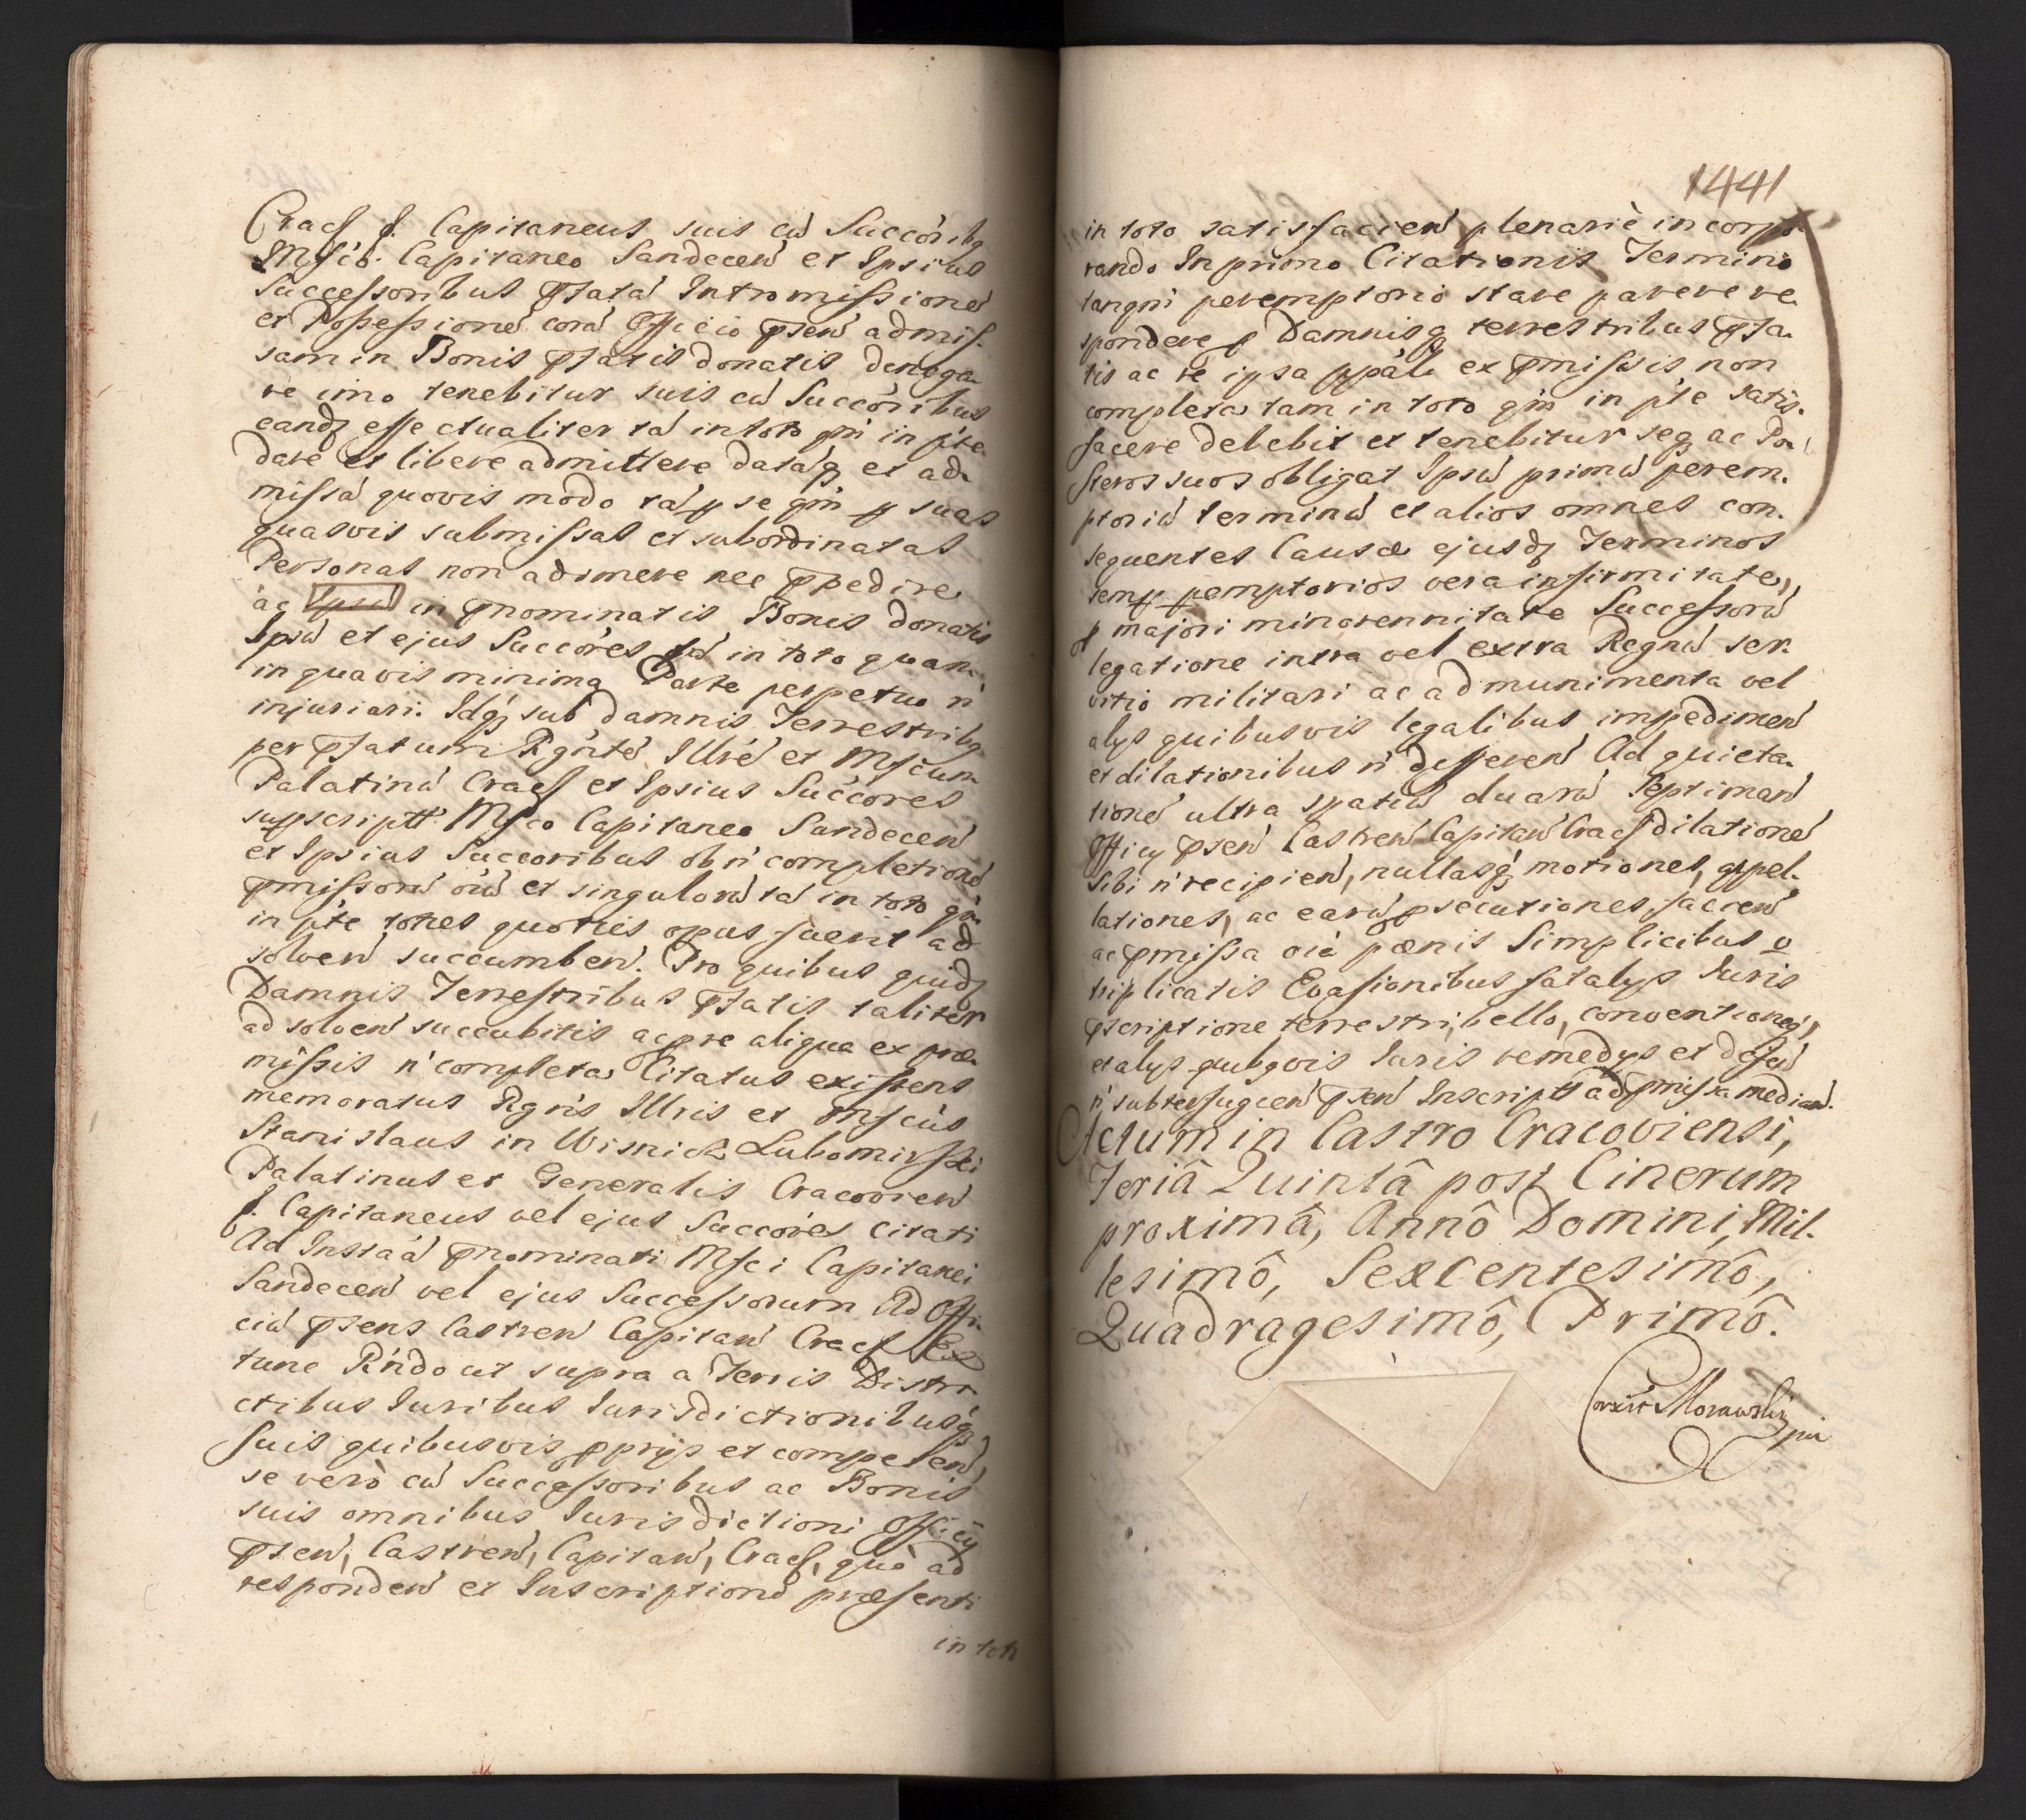 Crac ſ. Capitaneus suis cũ Succorib9
Mſcõ. Capitaneo Sandeceñ et Ipsius
Successoribus pſtatã Intromissionẽ
et Possessionẽ corã Officio pseñ admis-
sam in Bonis pſtatis donatis denega-
re imo tenebitur suis cũ Succõribus
eandq effectualiter tã in toto qm̃ in pte
dare et libere admittere datãq et ad-
missã quovis modo tã p se qm̃ p suas
quasvis submissas et subordinatas
Personas non adimere nec ppedire
ac in pnominatis Bonis donatis
Ipsũ et ejus Succõres tã in toto quam
in quavis minima Parte perpetuo ñ
injuriari. Idq sub damnis Terrestrib9
per pſtatum Rgñtẽ Illrẽ et Mſcum
Palatinũ Crac et Ipsius Succõres
supscriptt Mſco Capitaneo Sandeceñ
et Ipsius Succoribus ob ñ completionẽ
pmissorũ oĩũ et singulorũ tã in toto qm̃
in pte toties quoties opus fuerit ad
solveñ succumbeñ. Pro quibus quidq
Damnis Terrestribus pſtatis taliter
ad solveñ succubitis ac pre aliqua ex præ-
missis ñ completa Citatus existens
memoratus Rgñs Illris et Mſcũs
Stanislaus in Wisnicz Lubomirski
Palatinus et Generalis Cracovieñ
ſ. Capitaneus vel ejus Succõres citati
Ad Instãã pnominati Mſci Capitanei
Sandeceñ vel ejus Successorum Ad Offi-
ciũ psens Castreñ Capitañ Crac Ex
tunc Rñdo ut supra a Terris Distri-
ctibus Juribus Jurisdictionibusq
suis quibusvis pprijs et competeñ,
se verò cũ Successoribus ac Bonis
suis omnibus Jurisdictioni Officij
pseñ, Castreñ, Capitañ, Crac, què ad
respondeñ et Inscriptionẽ præsenti
in toto
1441
in toto satisfacieñ plenariè incorpo-
rando In primo Citationis Termino
tanqm̃ peremptorio stare parere re-
spondere p Damnisq terrestribus pſta-
tis ac re ipsa ppãli ex pmissis non
completa tam in toto qm̃ in pte satis-
facere debebit et tenebitur seq ac Po-
steros suos obligat Ipsũ primũ perem-
ptoriũ terminũ et alios omnes con-
sequentes Causæ ejusdq Terminos
semp pemptorios vera infirmitate,
p majori minorennitate Successorũ
legatione intra vel extra Regnũ ser-
vitio militari ac ad munimenta vel
alys quibusvis legalibus impedimeñ
et dilationibus ñ differeñ Ad quieta-
tionẽ ultra spatiũ duarũ Septimañ
Officij pseñ Castreñ Capitañ Crac dilationẽ
sibi ñ recipieñ, nullasq motiones, appel-
lationes, ac earũ psecutiones facieñ
ac pmissa oĩa pænis simplicibus v
triplicatis Evasionibus fatalys Juris
pscriptione terrestri, bello, conventioneq,
et alys quibqvis Juris remedys et defeñ
ñ subterfugieñ pseñ Inscriptt ad pmissa median.
Actum in Castro Cracoviensi,
Feriâ Quintâ post Cinerum
proximâ, Annô Domini, Mil-
lesimô, Sexcentesimô,
Quadragesimô, Primô.
Corxit Morawski
mp